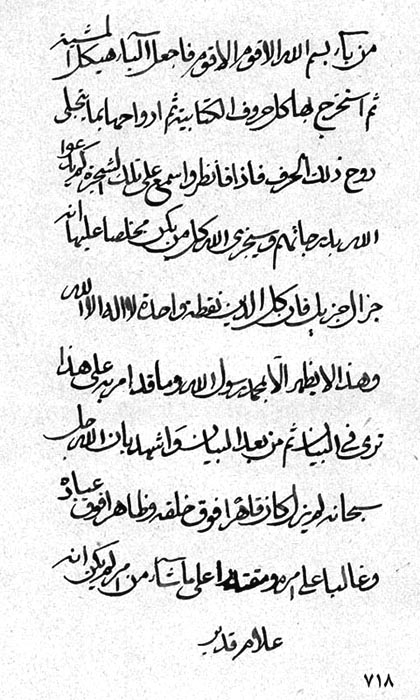 من باء بسم الله الاقوم الاقوم فاجعل الباء هيكل المشية
ثم استخرج بها كل حروف الكتابية ثم ارواحها بما يتجلى
روح ذلك الحرف فاذا فأنظر واسمع على تلك الشجرة كم يدعوا
الله بلغاتهم وسيجزى الله كل من يكن مخلصا عليها انه
جزال جزيل فان كل الدين نقطة واحدة لا اله الا الله
وهذا لا يظهر الا بمحمد رسول الله وما قد امر به على هذا
ترى في البيان ثم من بعد البيان واشهد بان الله جل
سبحانه لم يزل كان قاهرا فوق خلقه وظاهرا فوق عباده
وغالبا على امره ومقتدرا على ما شاء من امر لم يكن انه
علام قدير
٧١٨